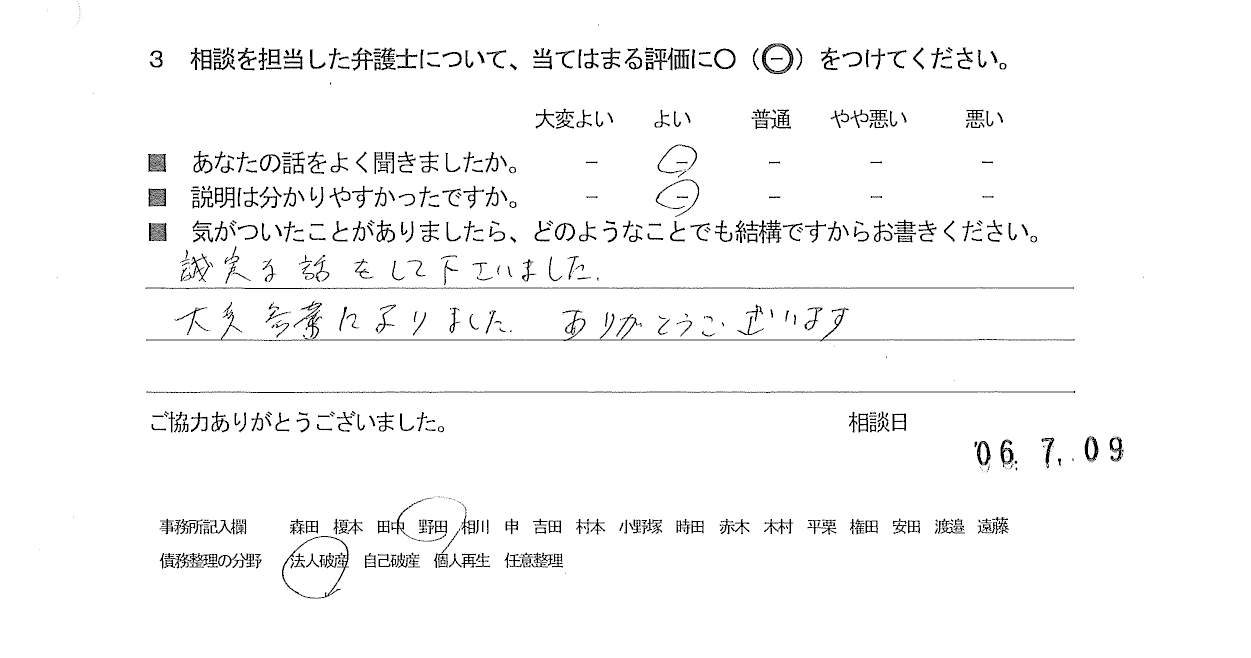 3 相談を担当した弁護士について、当てはまる評価に〇（㊀）をつけてください。
大変よい よい 普通 やや悪い 悪い
■ あなたの話をよく聞きましたか。 － － － － －
■ 説明は分かりやすかったですか。 － － － － －
■ 気がついたことがありましたら、どのようなことでも結構ですからお書きください。
誠実な話をして下さいました.
大変参考になりました. ありがとうございます
ご協力ありがとうございました。 相談日
'06. 7. 09
事務所記入欄 森田 榎本 田中 野田 相川 申 吉田 村本 小野塚 時田 赤木 木村 平栗 権田 安田 渡邉 遠藤
債務整理の分野 法人破産 自己破産 個人再生 任意整理